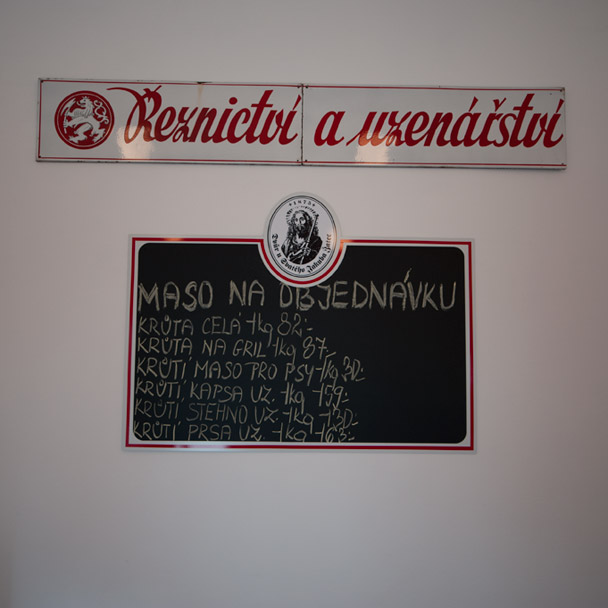 Řeznictví a uzenářství
1875
Dvůr u Svatého Jakuba
MASO NA OBJEDNÁVKU
KRŮTA CELÁ 1kg 82:-
KRŮTA NA GRIL 1kg 87,-
KRŮTÍ MASO PRO PSY 1kg 30:-
KRŮTÍ KAPSA UZ. 1kg 159:-
KRŮTÍ STEHNO UZ. 1kg 130:-
KRŮTÍ PRSA UZ. 1kg 163:-